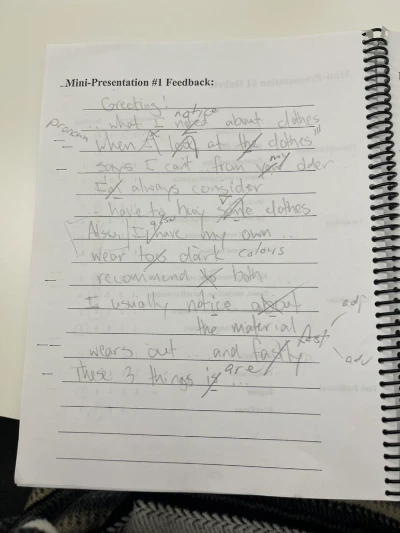 Mini-Presentation #1 Feedback:
Greeting!
notice
... what I noted about clothes"
pronoun
When I look at the clothes
says I can't from my older
I'd always consider
... have to buy some clothes
Also, I have my own ...
wear too dark colours
recommend to both
I usually notice about adj
the material fast
wears out ... and fastly adv
These 3 things is are ...